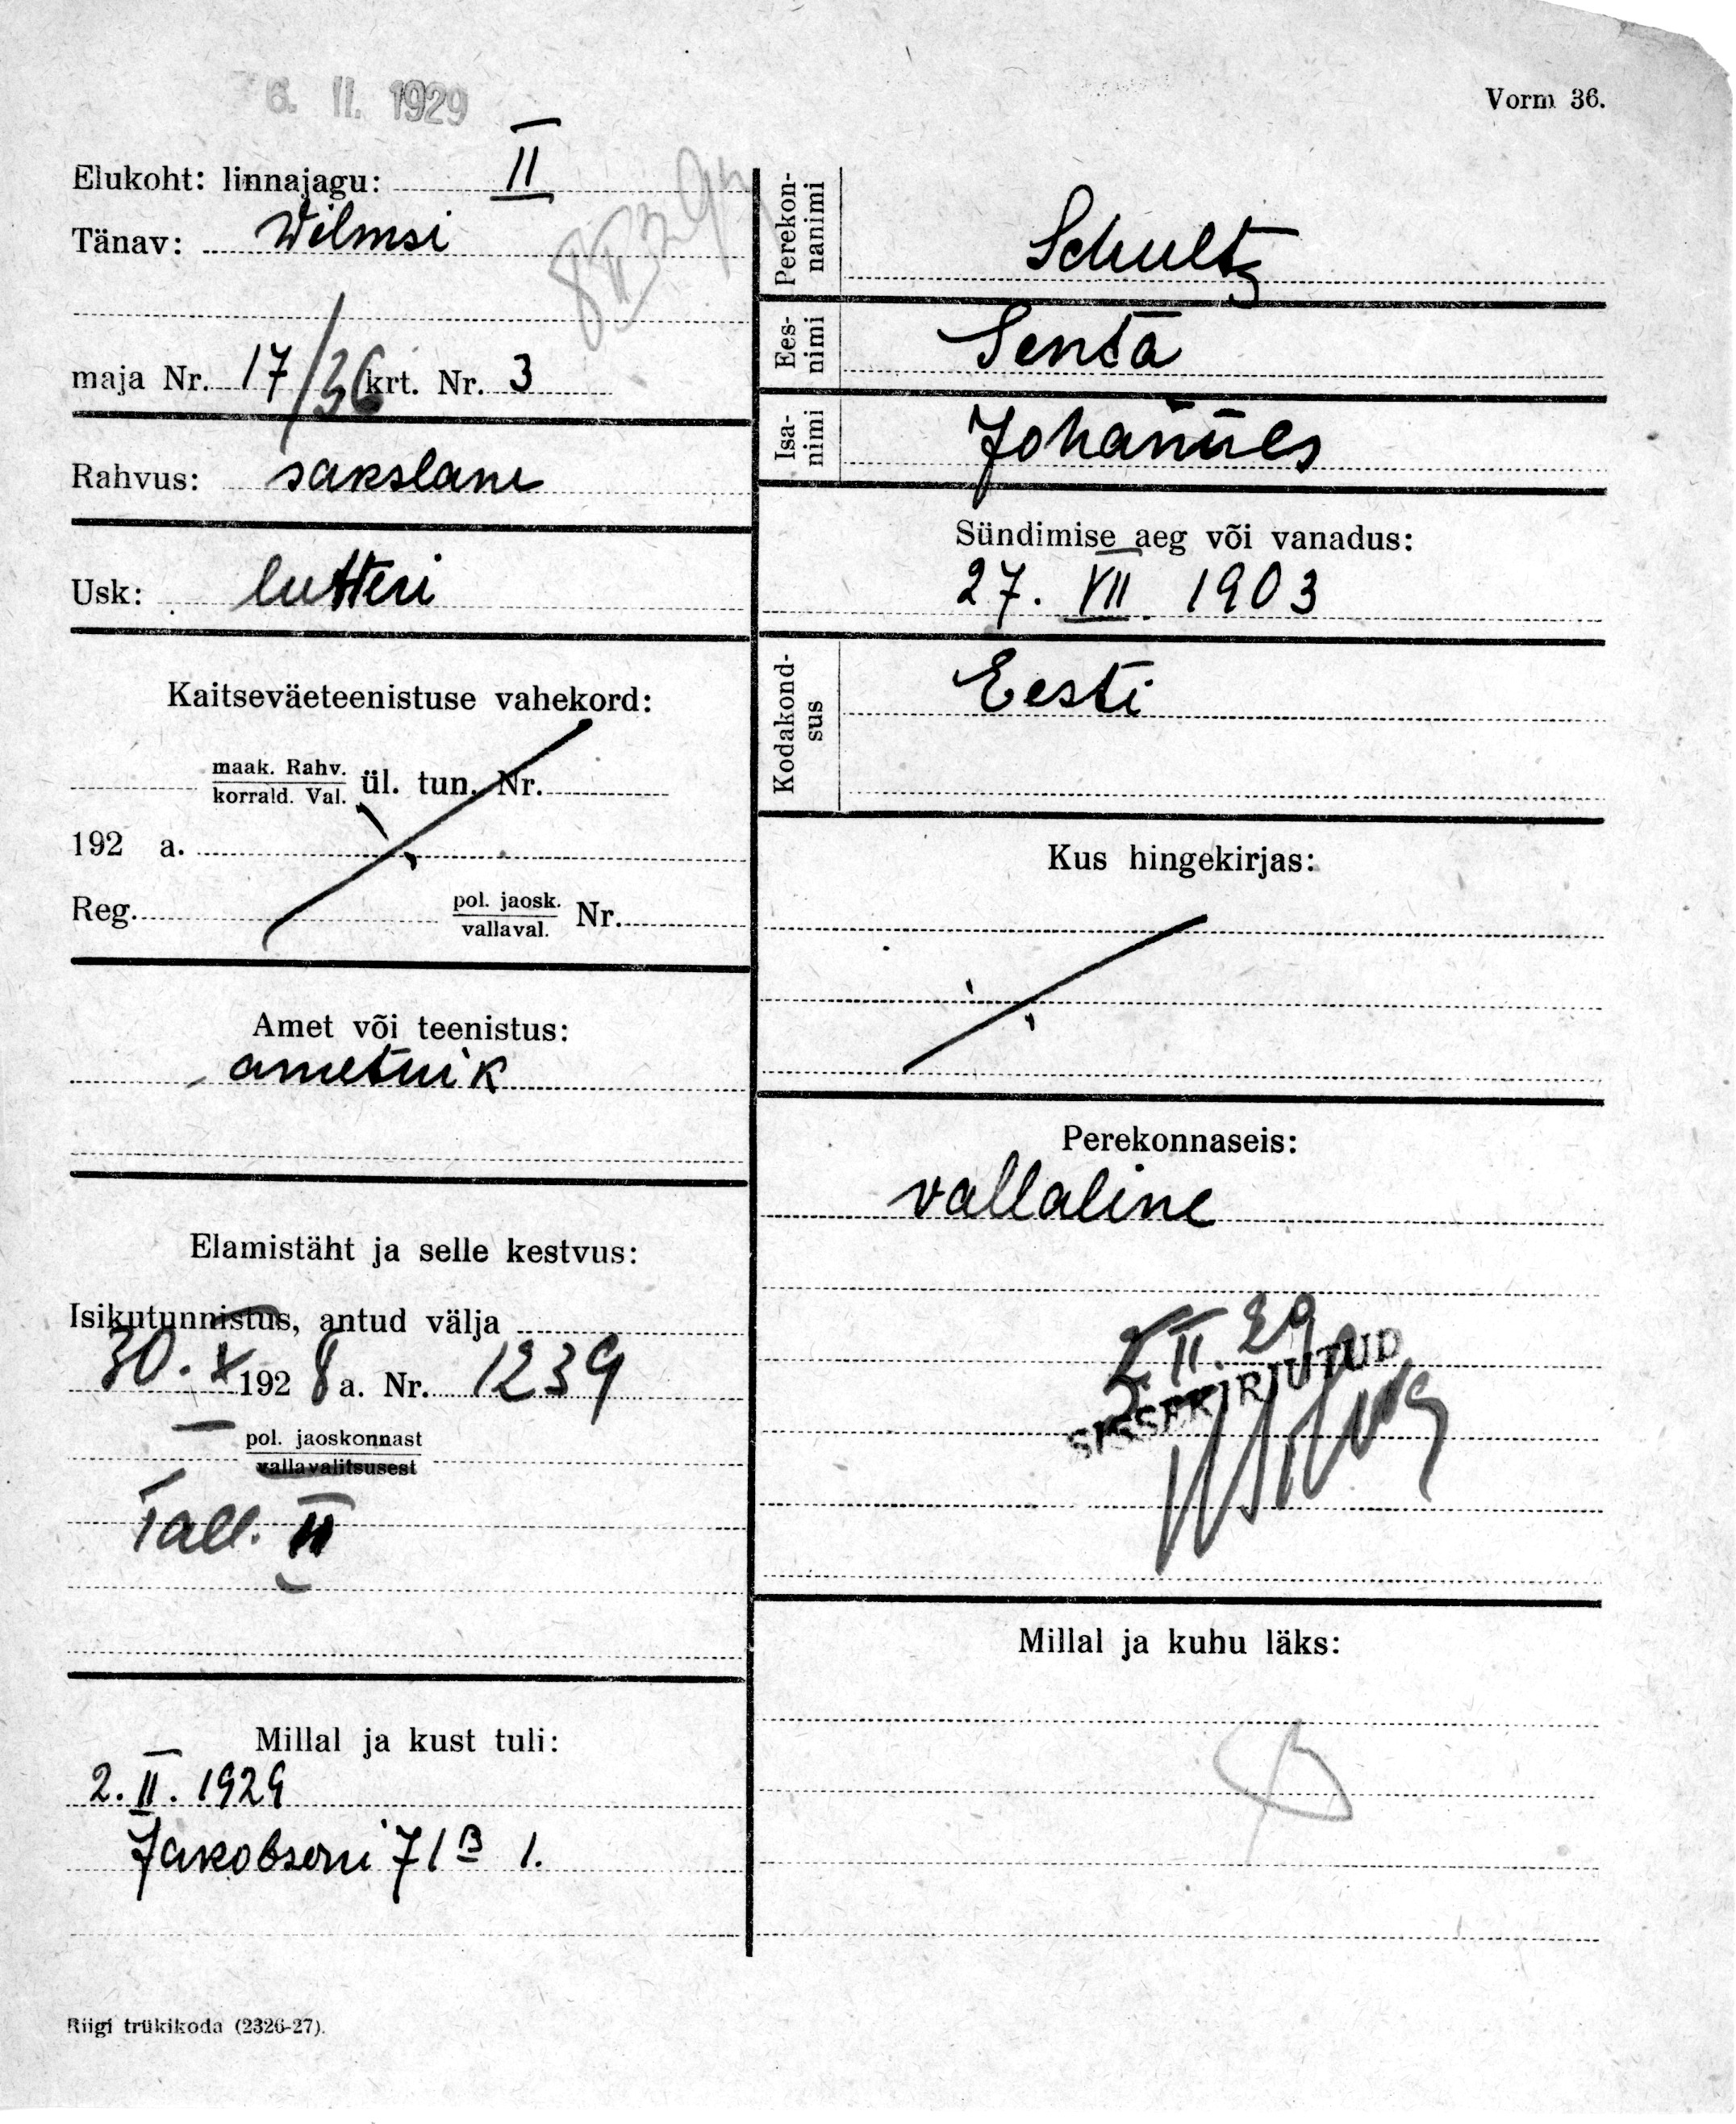 6. II. 1929
Vorm 36.
Elukoht: linnajagu: II
Tänav: Wilmsi
maja Nr. 17/36 krt. Nr. 3
Rahvus: sakslane
Usk: lutteri
Kaitseväeteenistuse vahekord:
maak. Rahv.
korrald. Val. ül. tun. Nr.
192 a.
Reg. pol. jaosk.
vallaval. Nr.
Amet või teenistus:
ametnik
Elamistäht ja selle kestvus:
Isikutunnistus, antud välja
30. X 1928 a. Nr. 1239
pol. jaoskonnast
vallavalitsusest
Tall. II
Millal ja kust tuli:
2. II. 1929
Jakobsoni 71 B 1.
Perekon-
nanimi
Schultz
Ees-
nimi
Senta
Isa-
nimi
Johannes
Sündimise aeg või vanadus:
27. VII. 1903
Kodakond-
sus
Eesti
Kus hingekirjas:
Perekonnaseis:
vallaline
5. II. 29
SISSEKIRJUTUD
Millal ja kuhu läks:
Riigi trükikoda (2326-27).